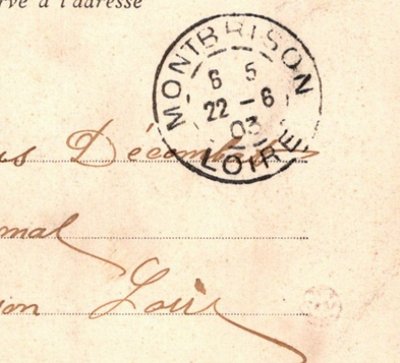 à l'adresse
MONTBRISON
6 5
22 - 6
03
LOIRE
Décomb
mal
on Loire